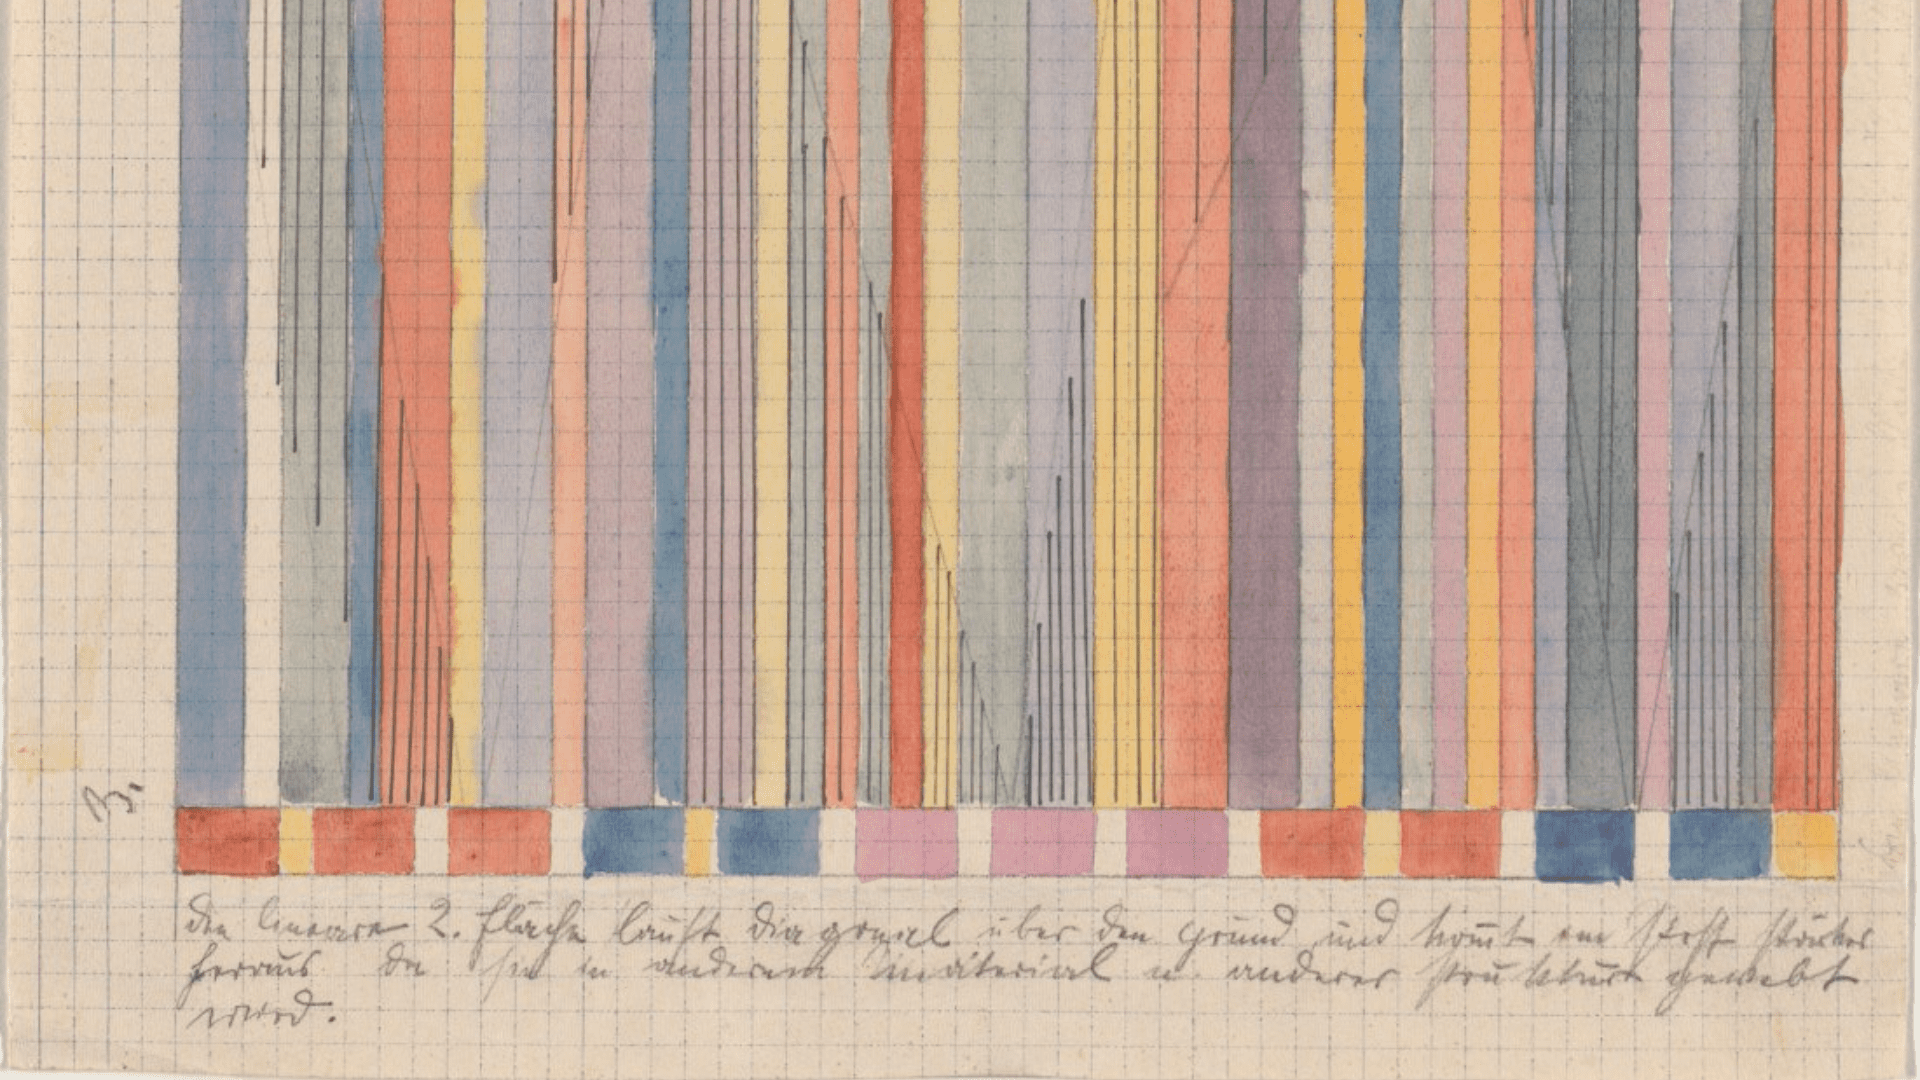 B.
die lineare 2. Fläche läuft diagonal über den grund und kommt am Stoff stärker
heraus da sie in anderem material u. anderer struktur gewebt
wird.